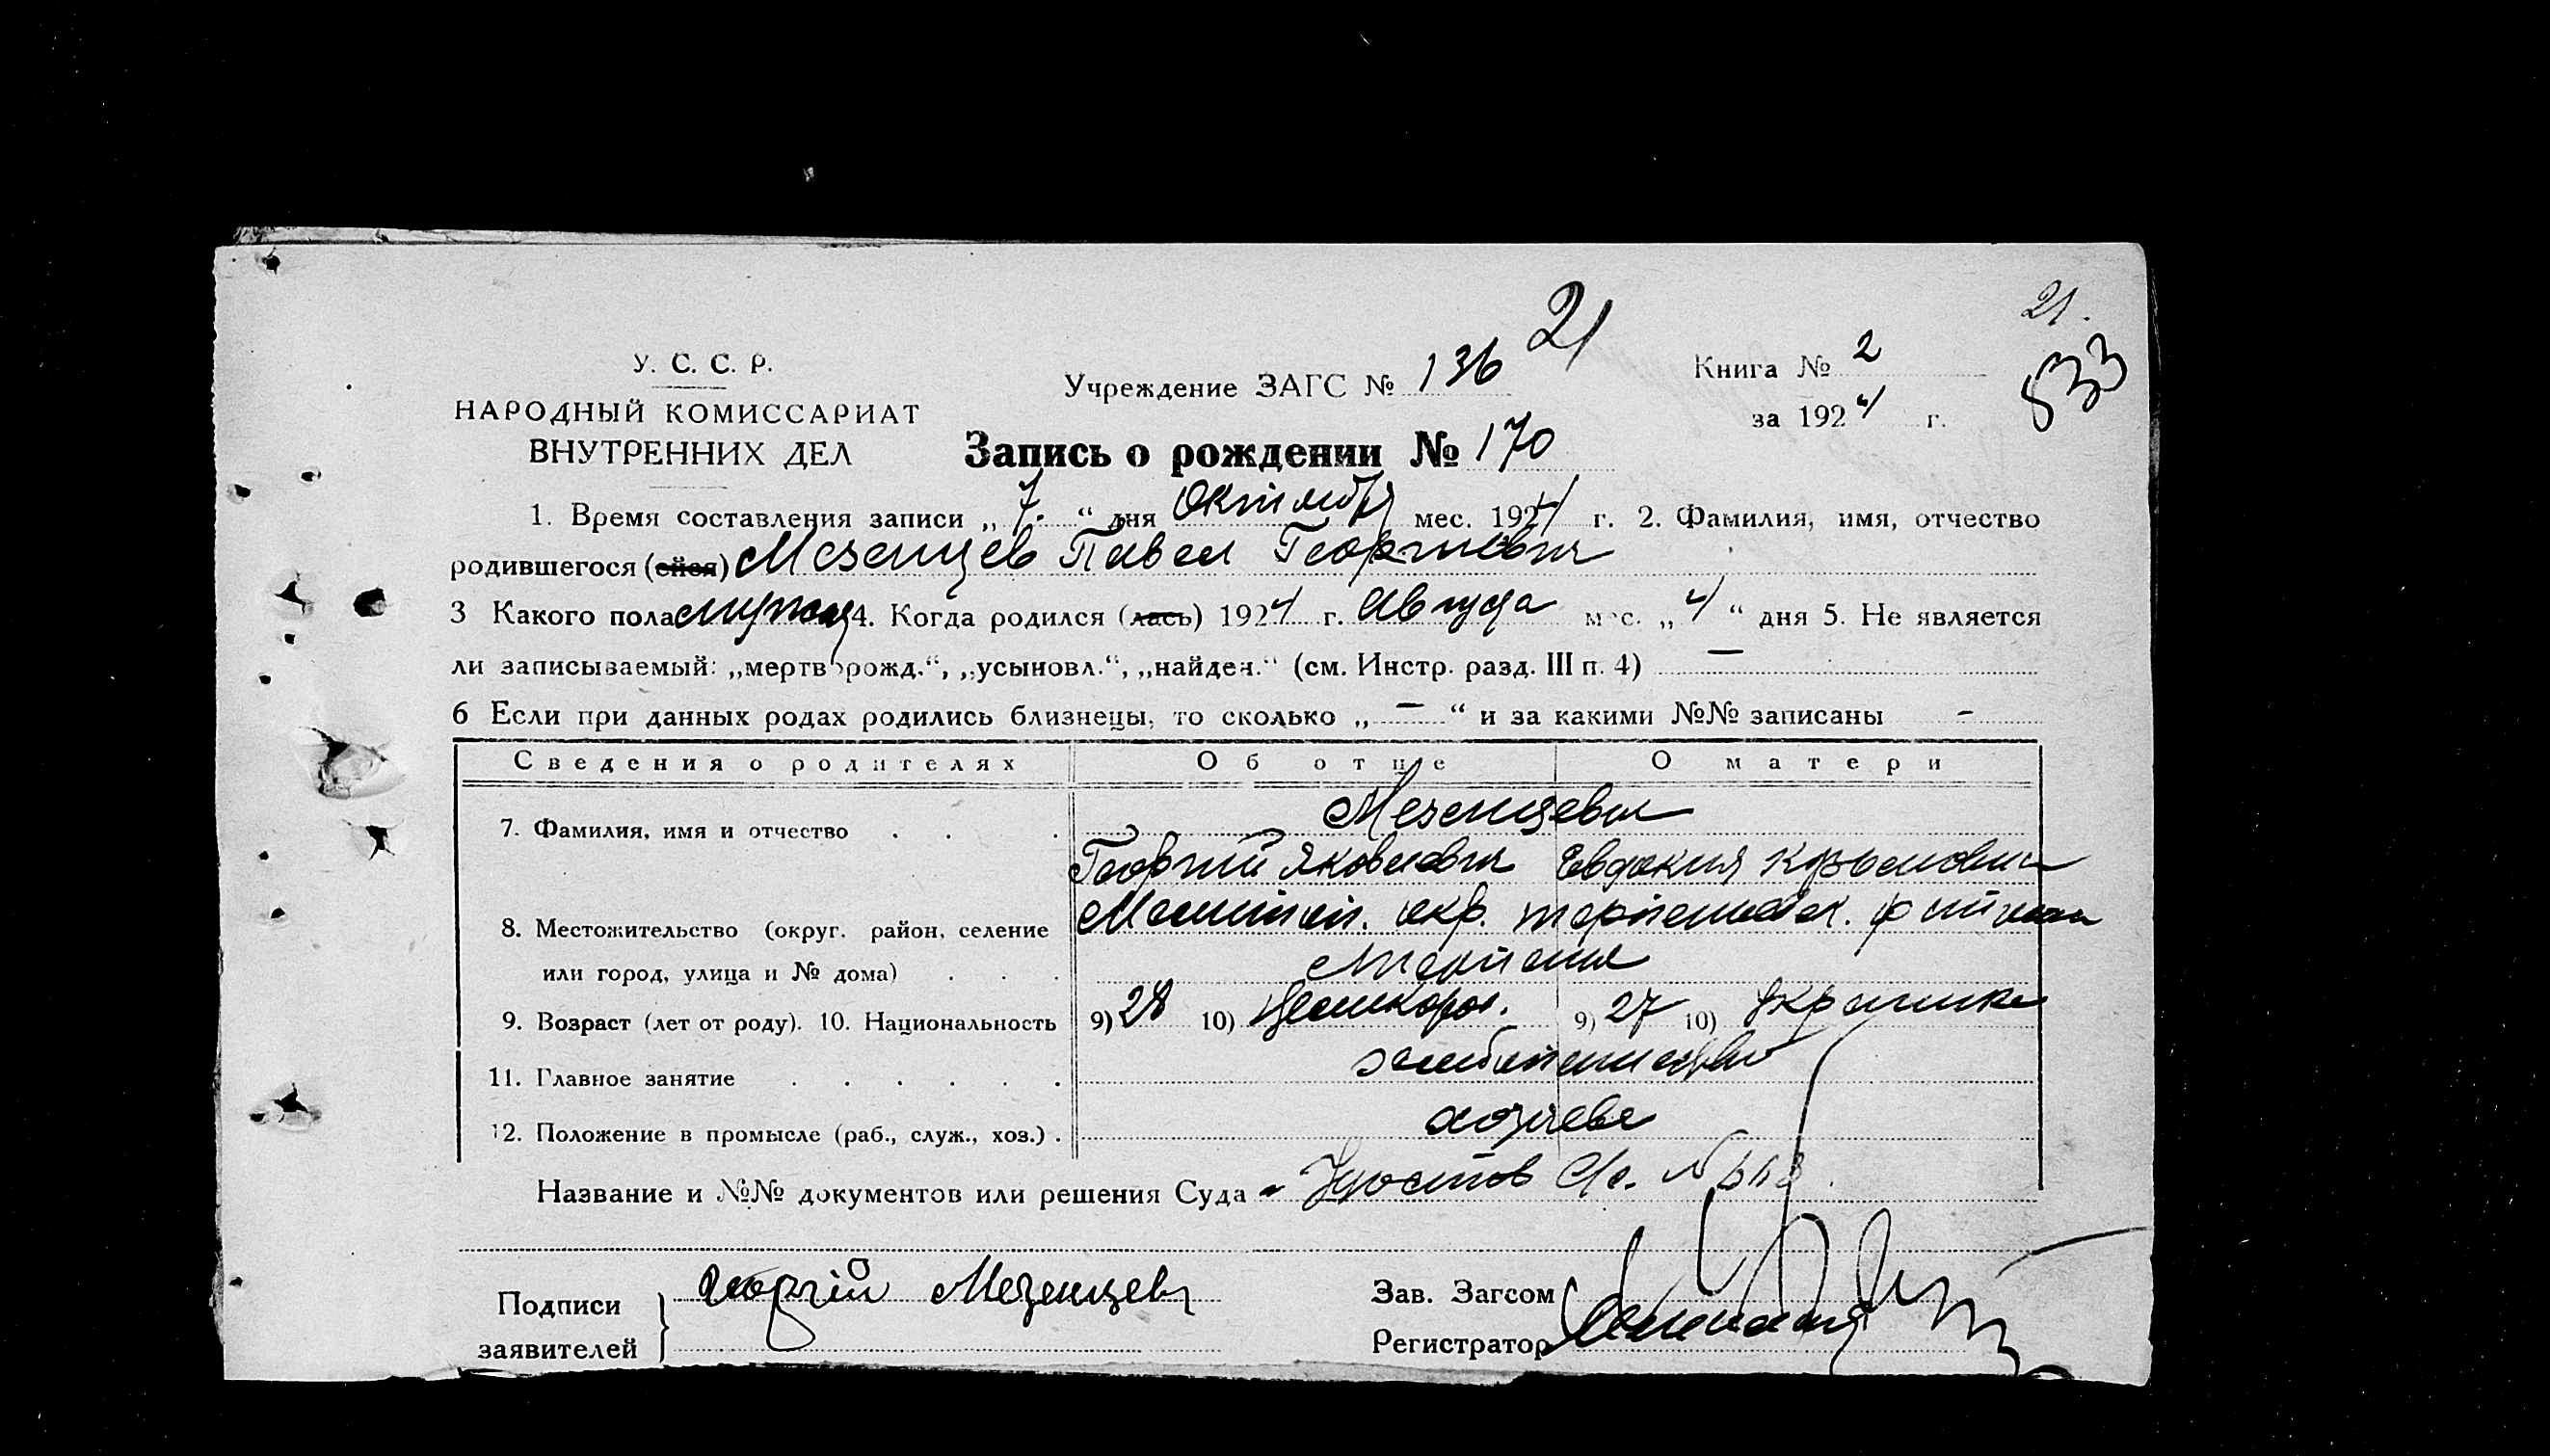 21
21.
У. С. С. Р.
Учреждение ЗАГС № 136
Книга № 2
533
НАРОДНЫЙ КОМИССАРИАТ
за 1924 г.
ВНУТРЕННИХ ДЕЛ
Запись о рождении № 170
1. Время составления записи „ 7. “ дня Октября мес. 1924 г. 2. Фамилия, имя, отчество
родившегося (ейся) Мезенцев Павел Георгиевич
3 Какого пола мужск 4. Когда родился (лась) 1924 г. Августа мес. „ 4 “ дня 5. Не является
ли записываемый: „мертворожд.“, „усыновл.“, „найден.“ (см. Инстр. разд. III п. 4) —
6 Если при данных родах родились близнецы, то сколько „ — “ и за какими №№ записаны -
Сведения о родителях Об отце О матери
Мезенцевы
7. Фамилия, имя и отчество . . .
Георгий Яковлевич Евдокия
окр.
8. Местожительство (округ. район, селение
или город, улица и № дома) . . .
9. Возраст (лет от роду). 10. Национальность 9) 28 10) 9) 27 10) Украинка
11. Главное занятие . . . . . .
12. Положение в промысле (раб., служ., хоз.) .
хозяева
Название и №№ документов или решения Суда - Удостов с/с. №
Подписи
заявителей
Георгій Мезенцевъ
Зав. Загсом
Регистратор